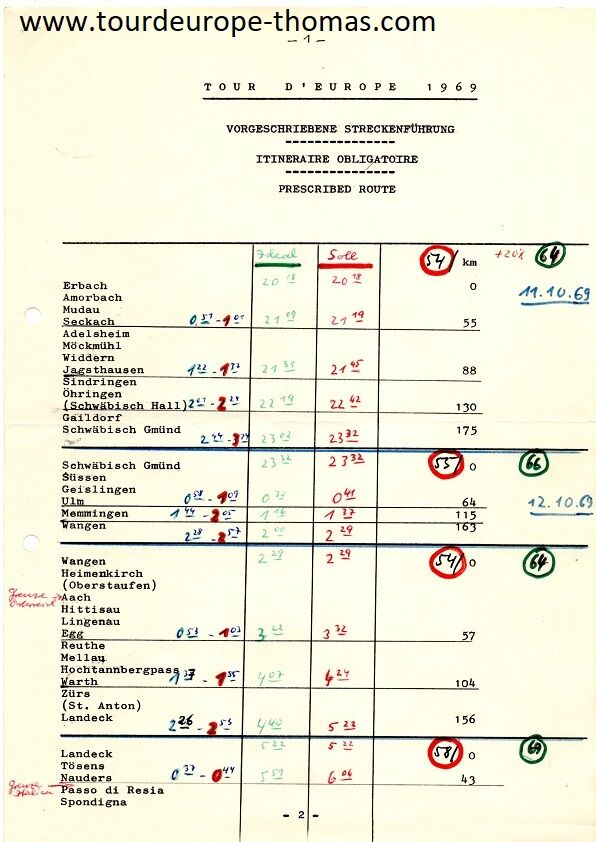 www.tourdeurope-thomas.com
- 1 -
TOUR D'EUROPE 1969
VORGESCHRIEBENE STRECKENFÜHRUNG
ITINERAIRE OBLIGATOIRE
PRESCRIBED ROUTE
Ideal Soll 54/ km +20% 64
Erbach 20 18 20 18 0 11.10.69
Amorbach
Mudau
Seckach 0.51 - 1 01 21 09 21 19 55
Adelsheim
Möckmühl
Widdern
Jagsthausen 1 22 - 1 37 21 31 21 45 88
Sindringen
Öhringen
(Schwäbisch Hall) 2 01 - 2 24 22 19 22 42 130
Gaildorf
Schwäbisch Gmünd 2 44 - 3 14 23 02 23 32 175
Schwäbisch Gmünd 23 32 23 32 55/ 0 66
Süssen
Geislingen
Ulm 0 58 - 1 09 0 30 0 41 64 12.10.69
Memmingen 1 44 - 2 05 1 16 1 37 115
Wangen 2 28 - 2 57 2 00 2 29 163
Wangen 2 29 2 29 54/ 0 64
Heimenkirch
(Oberstaufen)
Grenze Österreich → Aach
Hittisau
Lingenau
Egg 0 53 - 1 03 3 22 3 32 57
Reuthe
Mellau
Hochtannbergpass
Warth 1 37 - 1 55 4 07 4 24 104
Zürs
(St. Anton)
Landeck 2 26 - 2 53 4 40 5 22 156
Landeck 5 22 5 22 58/ 0 69
Tösens
Nauders 0 37 - 0 44 5 59 6 06 43
Grenze Italien Passo di Resia
Spondigna
- 2 -